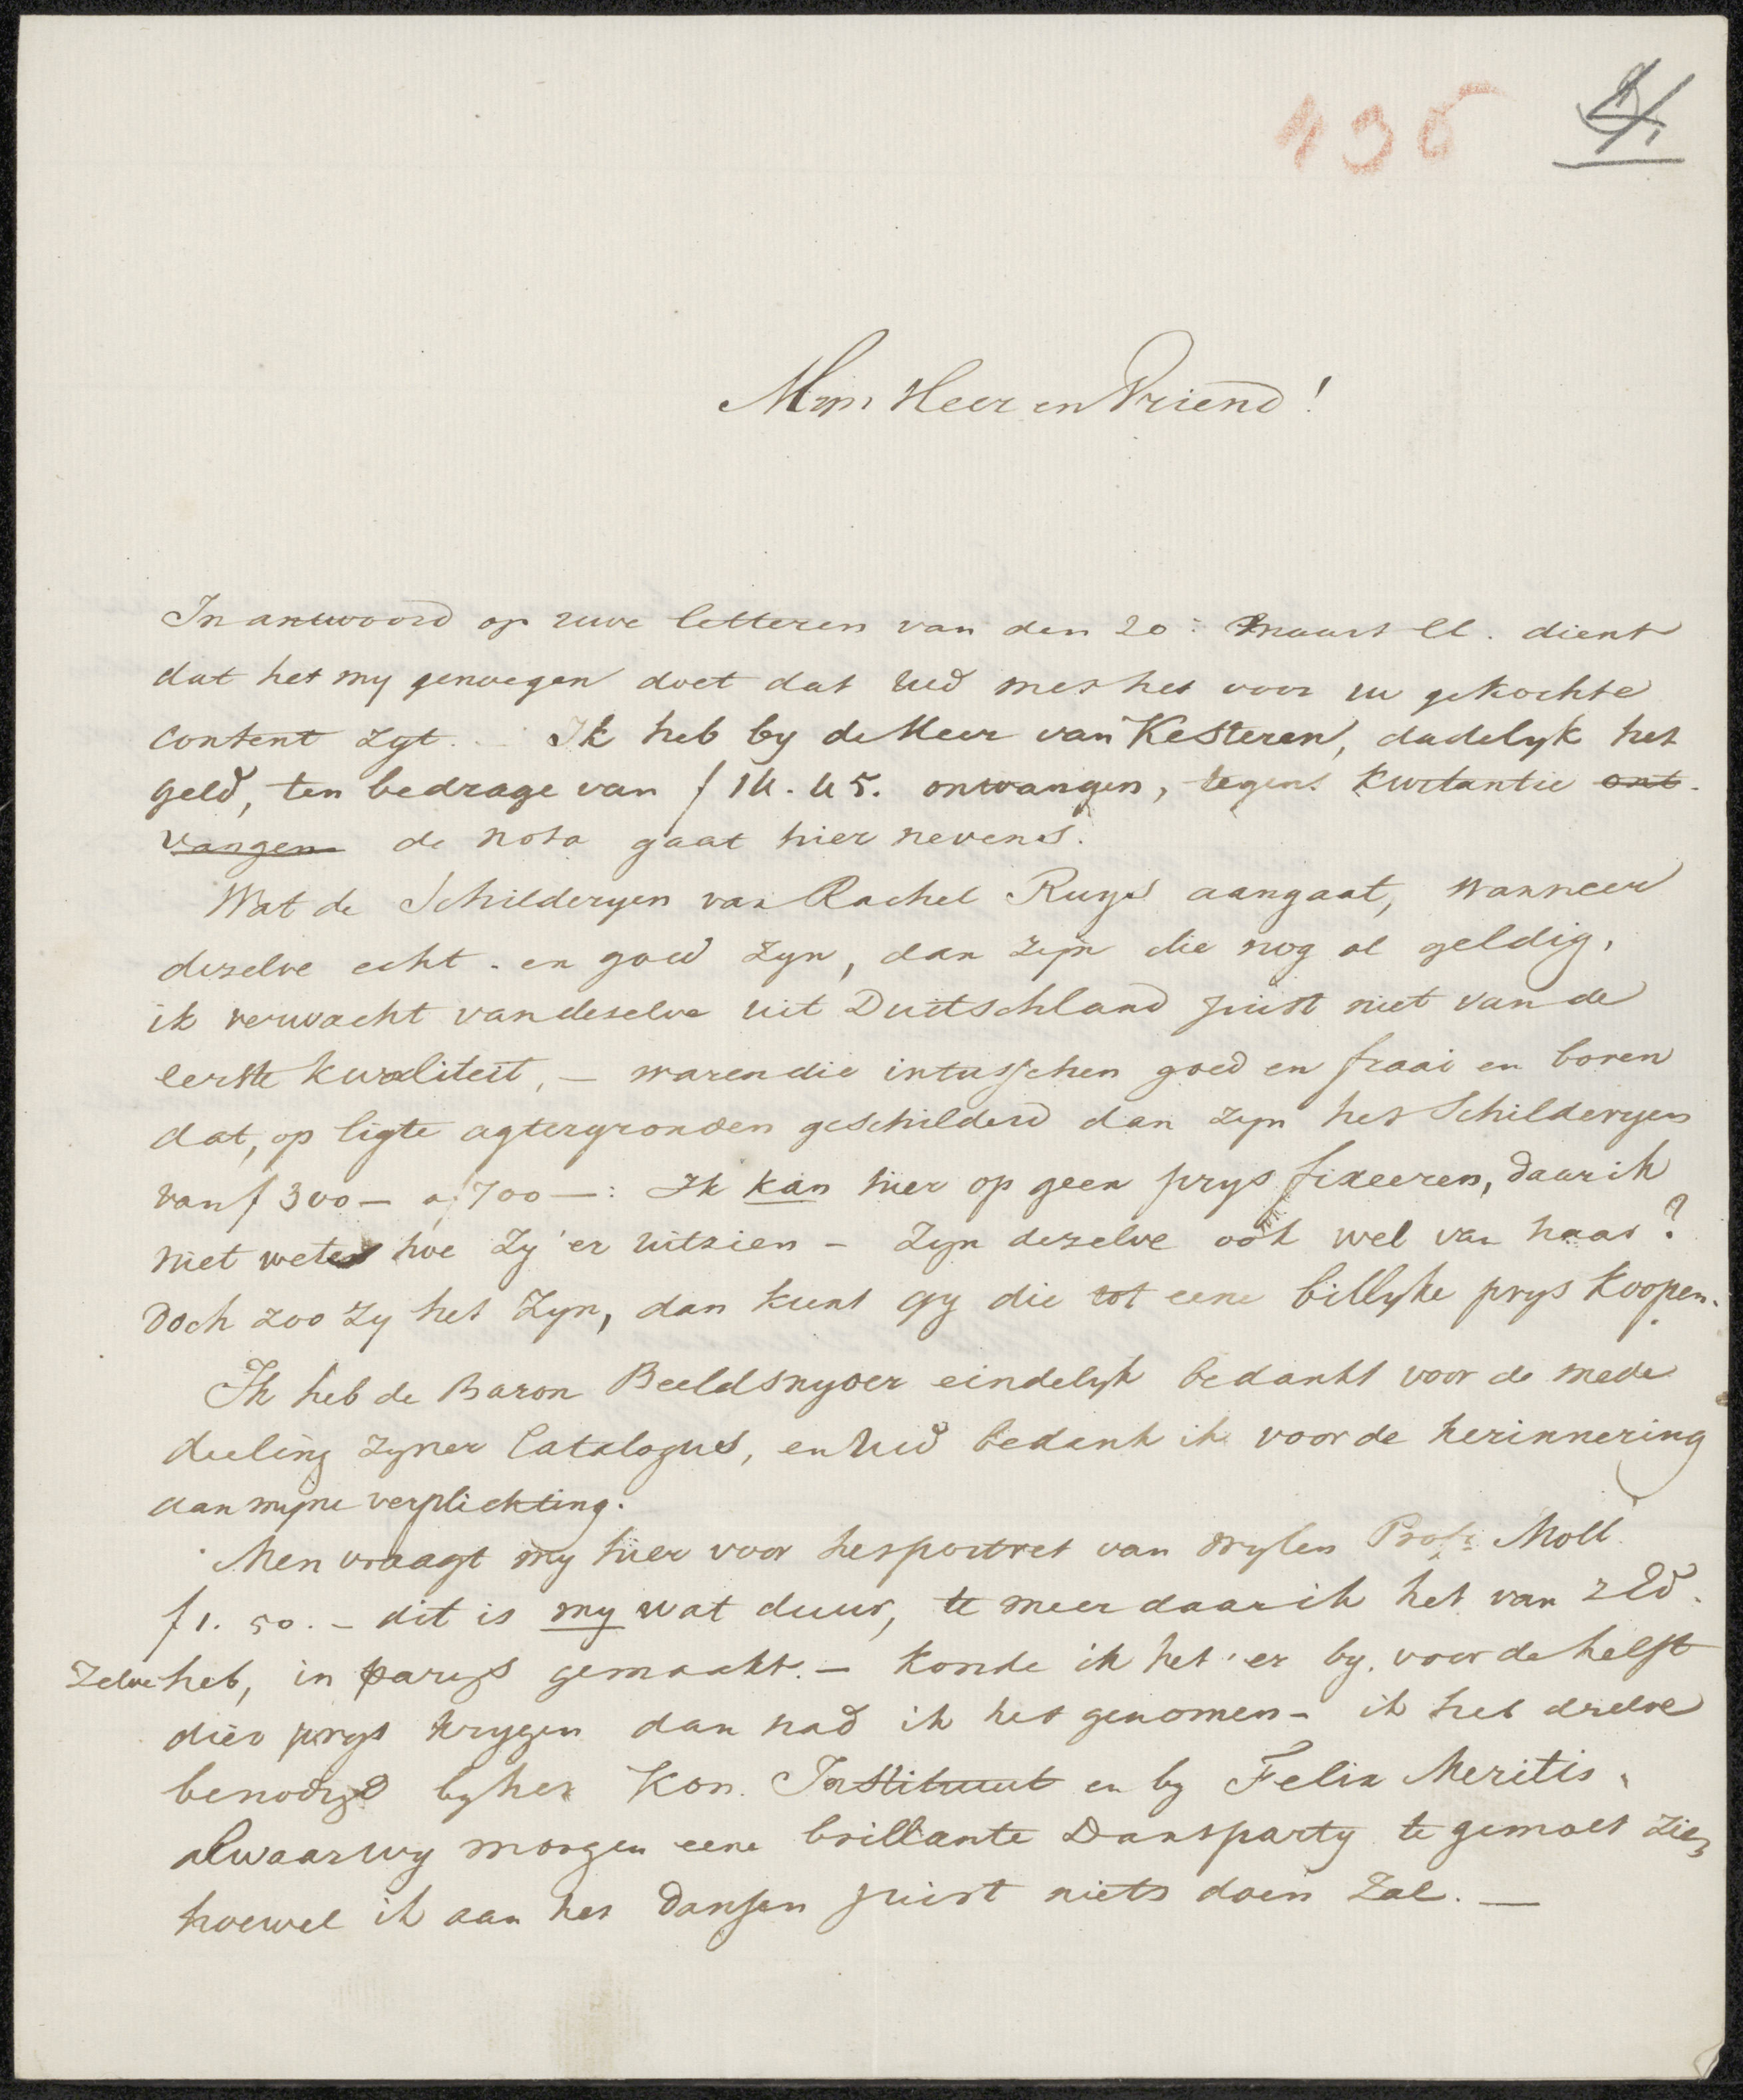 436
Mijn Heer en Vriend!
In antwoord op uwe letteren van den 20: Maart ll. dient
dat het my genoegen doet dat UEd met het voor u gekochte
content zyt. Ik heb by de Heer van Kesteren, dadelyk het
geld, ten bedrage van f 14.45. onvangen, tegens kwitantie ont-
vangen de nota gaat hier nevens.
Wat de Schilderyen van Rachel Ruys aangaat, wanneer
dezelve echt en goed zyn, dan zijn die nog al geldig,
ik verwacht van deselve uit Duitschland juist niet van de
eerste kwaliteit, — waren die intusschen goed en fraai en boven
dat, op ligte agtergronden geschilderd dan zyn het Schilderyen
van f 300 — a f 700 —: Ik kan hier op geen prys fixeeren, daar ik
niet weten hoe zy er uitzien — Zyn dezelve ook wel van haar?
Doch zoo zy het zyn, dan kunt gy die tot eene billyke prys koopen.
Ik heb de Baron Beeldsnyder eindelyk bedankt voor de mede
deeling zyner Catalogus, en UEd bedank ik voor de herinnering
aan myne verplichting.
Men vraagt my hier voor het portret van wylen Profr. Moll
f 1.50. — dit is my wat duur, te meer daar ik het van ZEd.
Zelve heb, in parys gemaakt. — konde ik het er by voor de helft
dier prys krygen dan had ik het genomen — ik heb dselve
benodigd by het Kon. Instituut en by Felix Meritis,
alwaar wy morgen eene brillante Dansparty te gemoet zien,
hoewel ik aan het Dansen juist niets doen zal. —